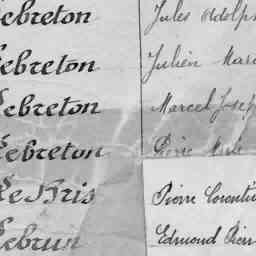 Lebreton Jules Adolph
Lebreton Julien Mari
Lebreton Marcel Josep
Lebreton Pierre Marie
Le Bris Pierre Corenti
Lebrun Edmond Pierr